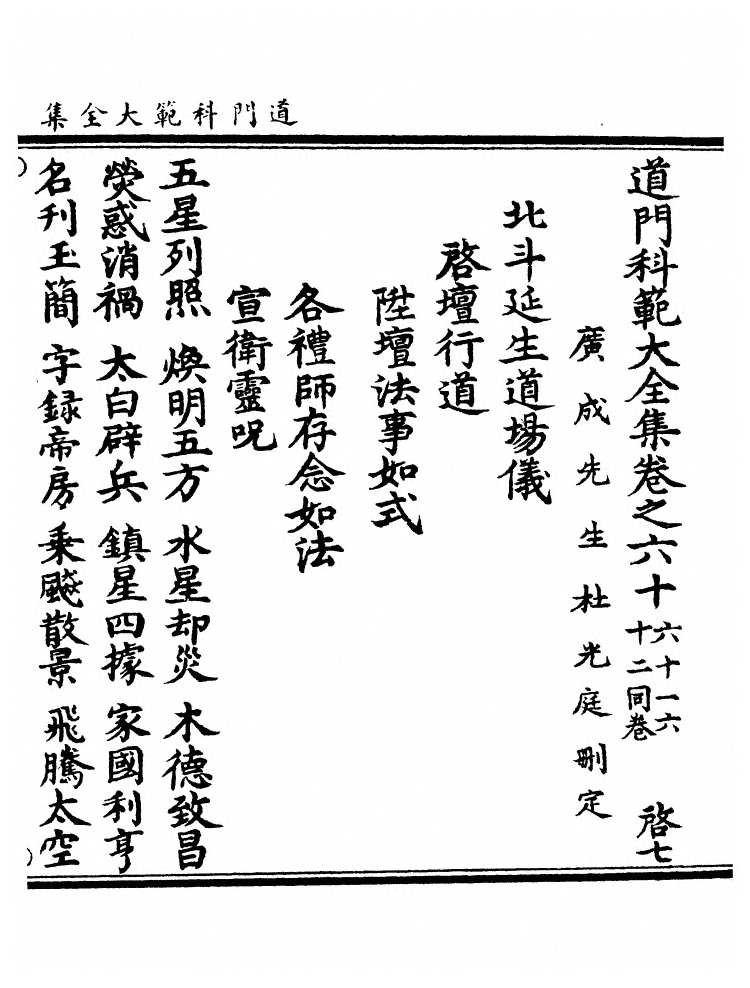 道門科範大全集
道門科範大全集卷之六十六十一六十二同卷 啓七
廣成先生杜光庭刪定
北斗延生道場儀
啓壇行道
陞壇法事如式
各禮師存念如法
宣衛靈呪
五星列照 煥明五方 水星却災 木德致昌
熒惑消禍 太白辟兵 鎮星四據 家國利亨
名刊玉簡 字録帝房 乗飈散景 飛騰太空